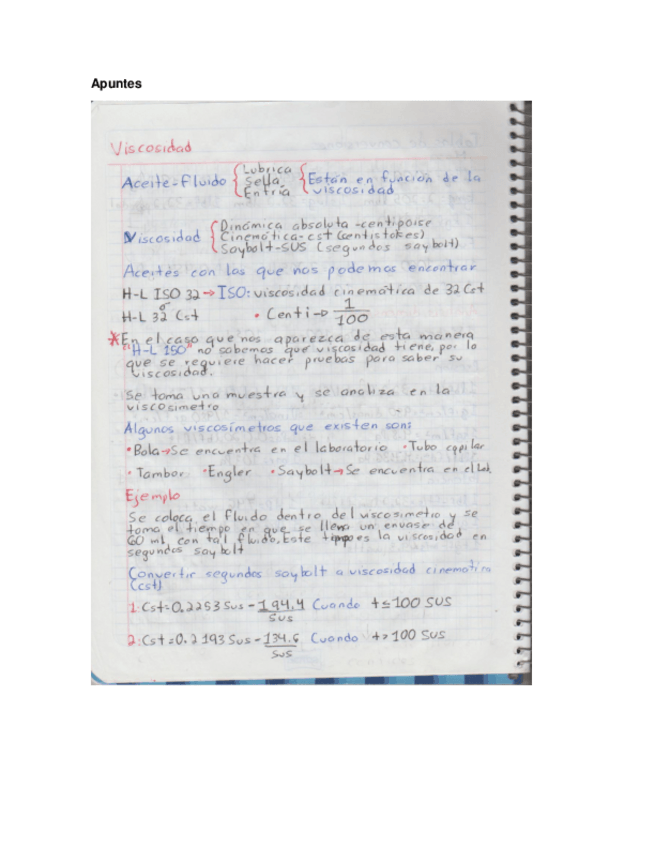 Apuntes
Viscosidad
Aceite-Fluido { Lubrica
Sella
Entría
{ Están en función de la
viscosidad
Viscosidad { Dinámica absoluta-centipoise
Cinemática-cst (centistokes)
Saybolt-SUS (segundos saybolt)
Aceites con los que nos podemos encontrar
H-L ISO 32 → ISO: viscosidad cinematica de 32 Cst
ó
H-L 32 Cst • Centi→ 1/100
* En el caso que nos aparezca de esta manera
"H-L ISO" no sabemos que viscosidad tiene, por lo
que se requiere hacer pruebas para saber su
viscosidad.
Se toma una muestra y se analiza en la
viscosimetro
Algunos viscosímetros que existen son:
• Bola→Se encuentra en el laboratorio • Tubo capilar
• Tambor • Engler • Saybolt→Se encuentra en el Lab.
Ejemplo
Se coloca el fluido dentro del viscosimetro y se
toma el tiempo en que se llena un envase de
60 ml, con tal fluido. Este tiempo es la viscosidad en
segundos saybolt
Convertir segundos saybolt a viscosidad cinematica
(cst)
1: Cst=0.2253 Sus - 194.4/SUS Cuando t≤100 SUS
2: Cst=0.2193 Sus - 134.6/SUS Cuando t>100 SUS